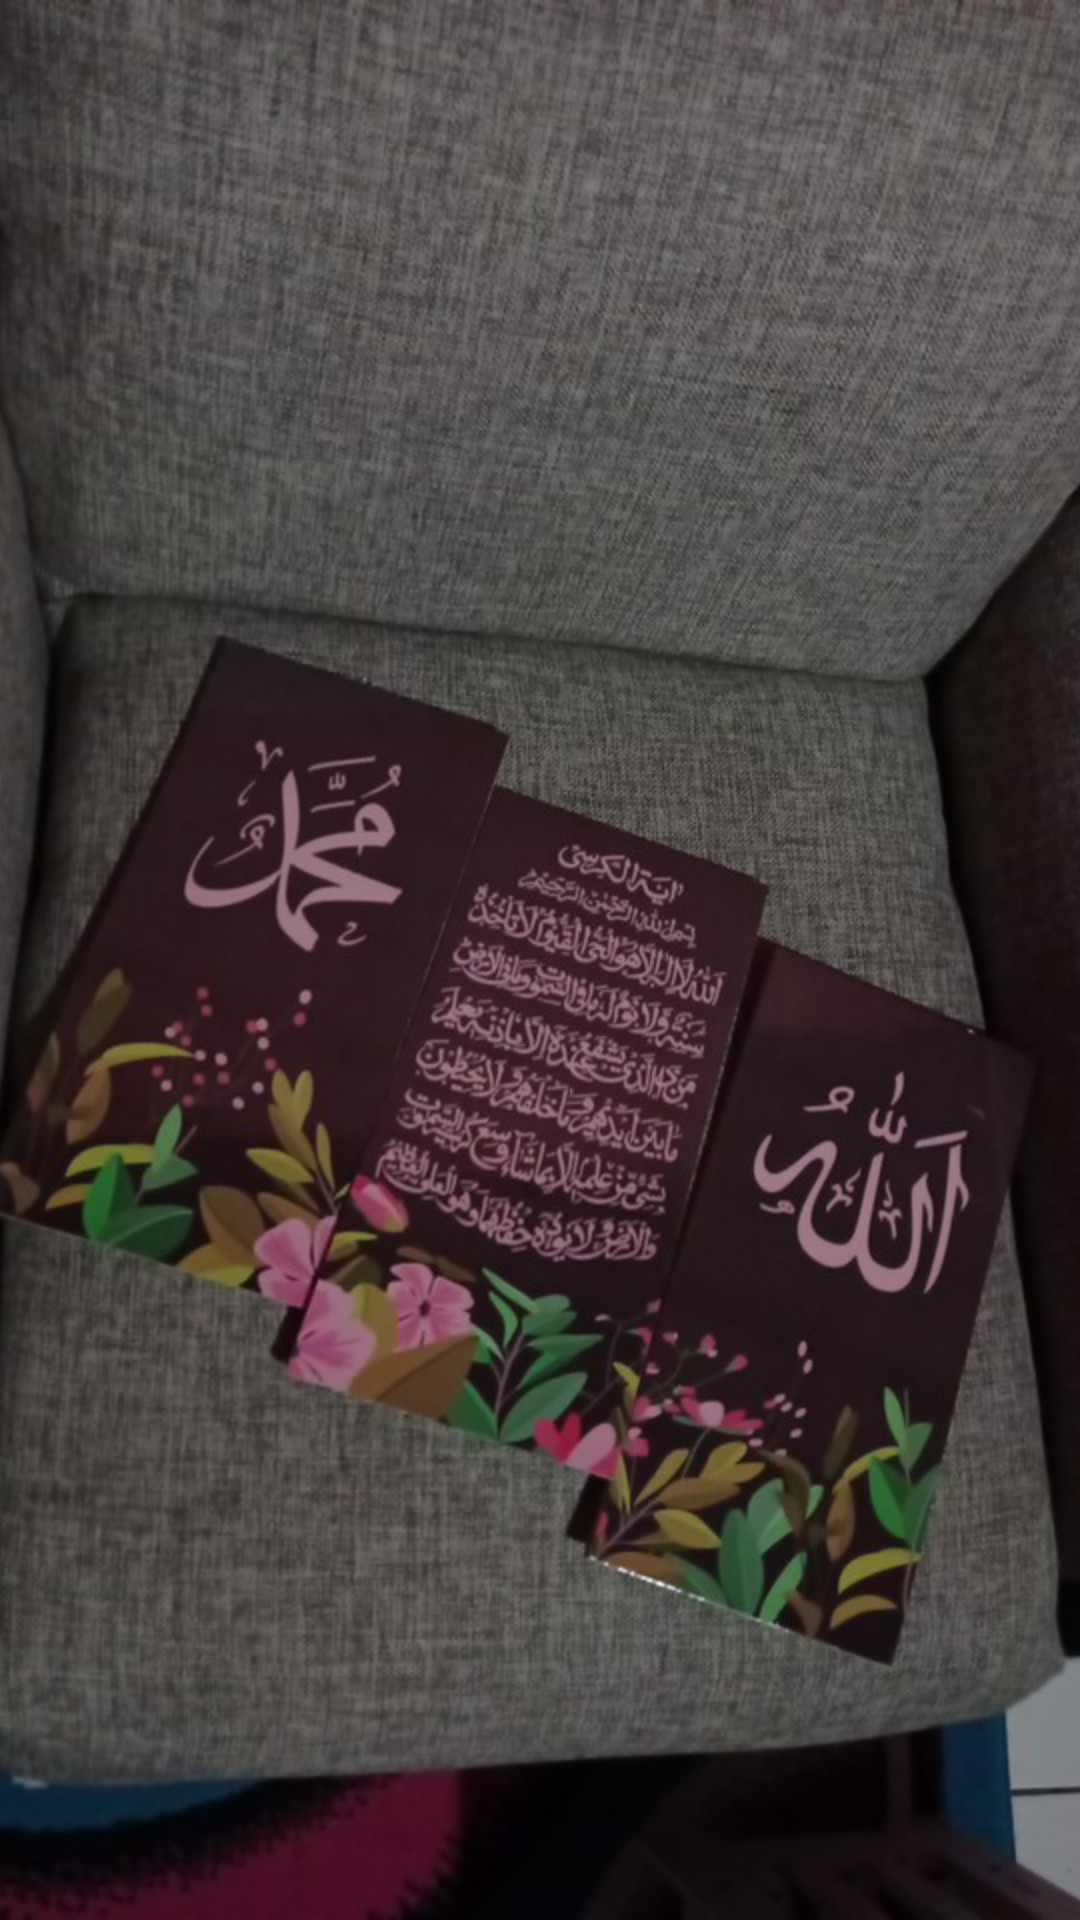 اللّٰهُ
اٰيَةُ الْكُرْسِيّ
بِسْمِ اللهِ الرَّحْمٰنِ الرَّحِيْمِ
اَللهُ لَا اِلٰهَ اِلَّا هُوَ الْحَيُّ الْقَيُّوْمُ لَا تَأْخُذُهُ
سِنَةٌ وَّلَا نَوْمٌ لَهُ مَا فِى السَّمٰوٰتِ وَمَا فِى الْاَرْضِ
مَنْ ذَا الَّذِيْ يَشْفَعُ عِنْدَهُ اِلَّا بِاِذْنِهِ يَعْلَمُ
مَا بَيْنَ اَيْدِيْهِمْ وَمَا خَلْفَهُمْ وَلَا يُحِيْطُوْنَ
بِشَيْءٍ مِّنْ عِلْمِهِ اِلَّا بِمَا شَآءَ وَسِعَ كُرْسِيُّهُ السَّمٰوٰتِ
وَالْاَرْضَ وَلَا يَئُوْدُهُ حِفْظُهُمَا وَهُوَ الْعَلِيُّ الْعَظِيْمُ
مُحَمَّدٌ